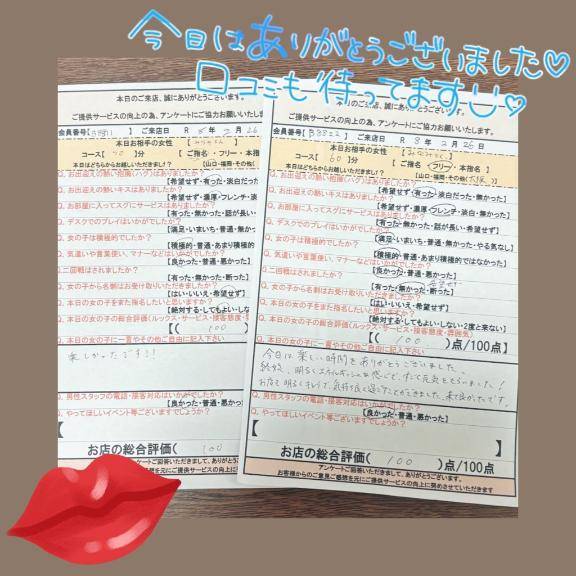 今日はありがとうございました♡
口コミも待ってます♡
本日のご来店、誠にありがとうございます。
ご提供サービスの向上の為、アンケートにご協力お願いします。
会員番号【】 ご来店日 R 8年 2月 26
本日お相手の女性
コース【 】分 【 ご指名・フリー・本指名
本日はどちらからお越しいただきましたか? 【山口・福岡・その他(
Q. お出迎えの熱い抱擁(ハグ)はありましたか?
【希望せず・有った・淡白だった
Q. お出迎えの熱いキスはありましたか?
【希望せず・濃厚・フレンチ・淡
Q. お部屋に入ってスグにサービスはありましたか?
【有った・無かった・話が長い・
Q. デスクでのプレイはいかがでしたか?
【満足・いまいち・普通・無かった
Q. 女の子は積極的でしたか?
【積極的・普通・あまり積極的
Q. 気遣いや言葉使い、マナーなどはいかがでしたか?
【良かった・普通・悪かった】
Q.二回戦はされましたか?
【有った・無かった・断った】
Q. 女の子から名刺はお受け取りいただけましたか?
【はい・いいえ・希望せず】
Q. 本日の女の子をまた指名したいと思いますか?
【絶対する・してもよい・しな
Q. 本日の女の子の総合評価(ルックス・サービス・接客態度・雰
【( 100
Q. 本日の女の子に一言やその他ご自由に記入下さい
楽しかったです!!
Q. 男性スタッフの電話・接客対応はいかがでしたか?
【良かった・普通・悪かっ
Q. やってほしいイベント等ございますでしょうか?
【
お店の総合評価( 100
アンケートご回答いただきまして、ありがとう
お客様からのご意見ご感想を元にご提供サービスの向上
本日のご来店、誠にありがとうございます。
ご提供サービスの向上の為、アンケートにご協力お願いします。
会員番号【】 ご来店日 R 8年 2月 26日
本日お相手の女性
コース【 60 】分 【 ご指名・フリー・本指名】
本日はどちらからお越しいただきましたか? 【山口・福岡・その他(大阪)】
Q. お出迎えの熱い抱擁(ハグ)はありましたか?
【希望せず・有った・淡白だった・無かった】
Q. お出迎えの熱いキスはありましたか?
【希望せず・濃厚・フレンチ・淡白・無かった】
Q. お部屋に入ってスグにサービスはありましたか?
【有った・無かった・話が長い・希望せず】
Q. デスクでのプレイはいかがでしたか?
【満足・いまいち・普通・無かった・やる気なし】
Q. 女の子は積極的でしたか?
【積極的・普通・あまり積極的ではなかった】
Q. 気遣いや言葉使い、マナーなどはいかがでしたか?
【良かった・普通・悪かった】
Q.二回戦はされましたか?
【有った・無かった・断った】
Q. 女の子から名刺はお受け取りいただけましたか?
【はい・いいえ・希望せず】
Q. 本日の女の子をまた指名したいと思いますか?
【絶対する・してもよい・しない・2度と来ない】
Q. 本日の女の子の総合評価(ルックス・サービス・接客態度・雰囲気)
【( 100 )点/100点】
Q. 本日の女の子に一言やその他ご自由に記入下さい
今日は楽しい時間をありがとうございました。
Q. 男性スタッフの電話・接客対応はいかがでしたか?
【良かった・普通・悪かった】
Q. やってほしいイベント等ございますでしょうか?
【
お店の総合評価( 100 )点/100点
アンケートご回答いただきまして、ありがとうございます。
お客様からのご意見ご感想を元にご提供サービスの向上に努めさせていただきます